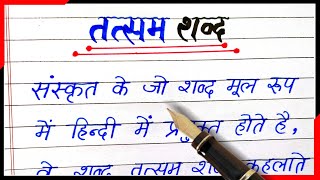 तत्सम शब्द
संस्कृत के जो शब्द मूल रूप
में हिन्दी में प्रयुक्त होते है,
वे शब्द तत्सम शब्द कहलाते